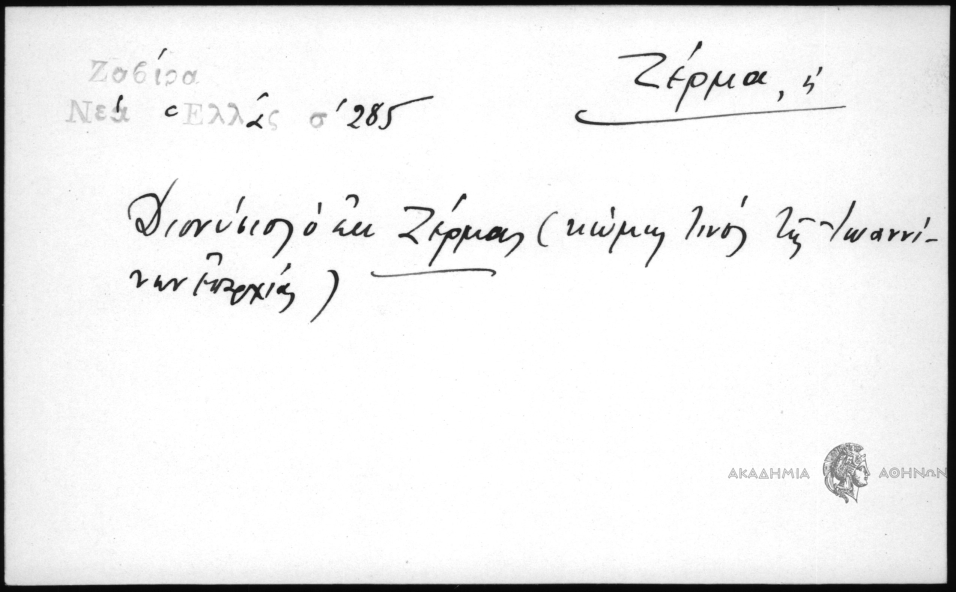 Ζαβίρα
Νέα Ἑλλάς σ' 285
Ζέρμα, ἡ
Διονύσιος ὁ ἐκ Ζέρμας (κώμης τινός τῆς Ἰωαννί-
νων Ἐπαρχίας)
ΑΚΑΔΗΜΙΑ ΑΘΗΝΩΝ